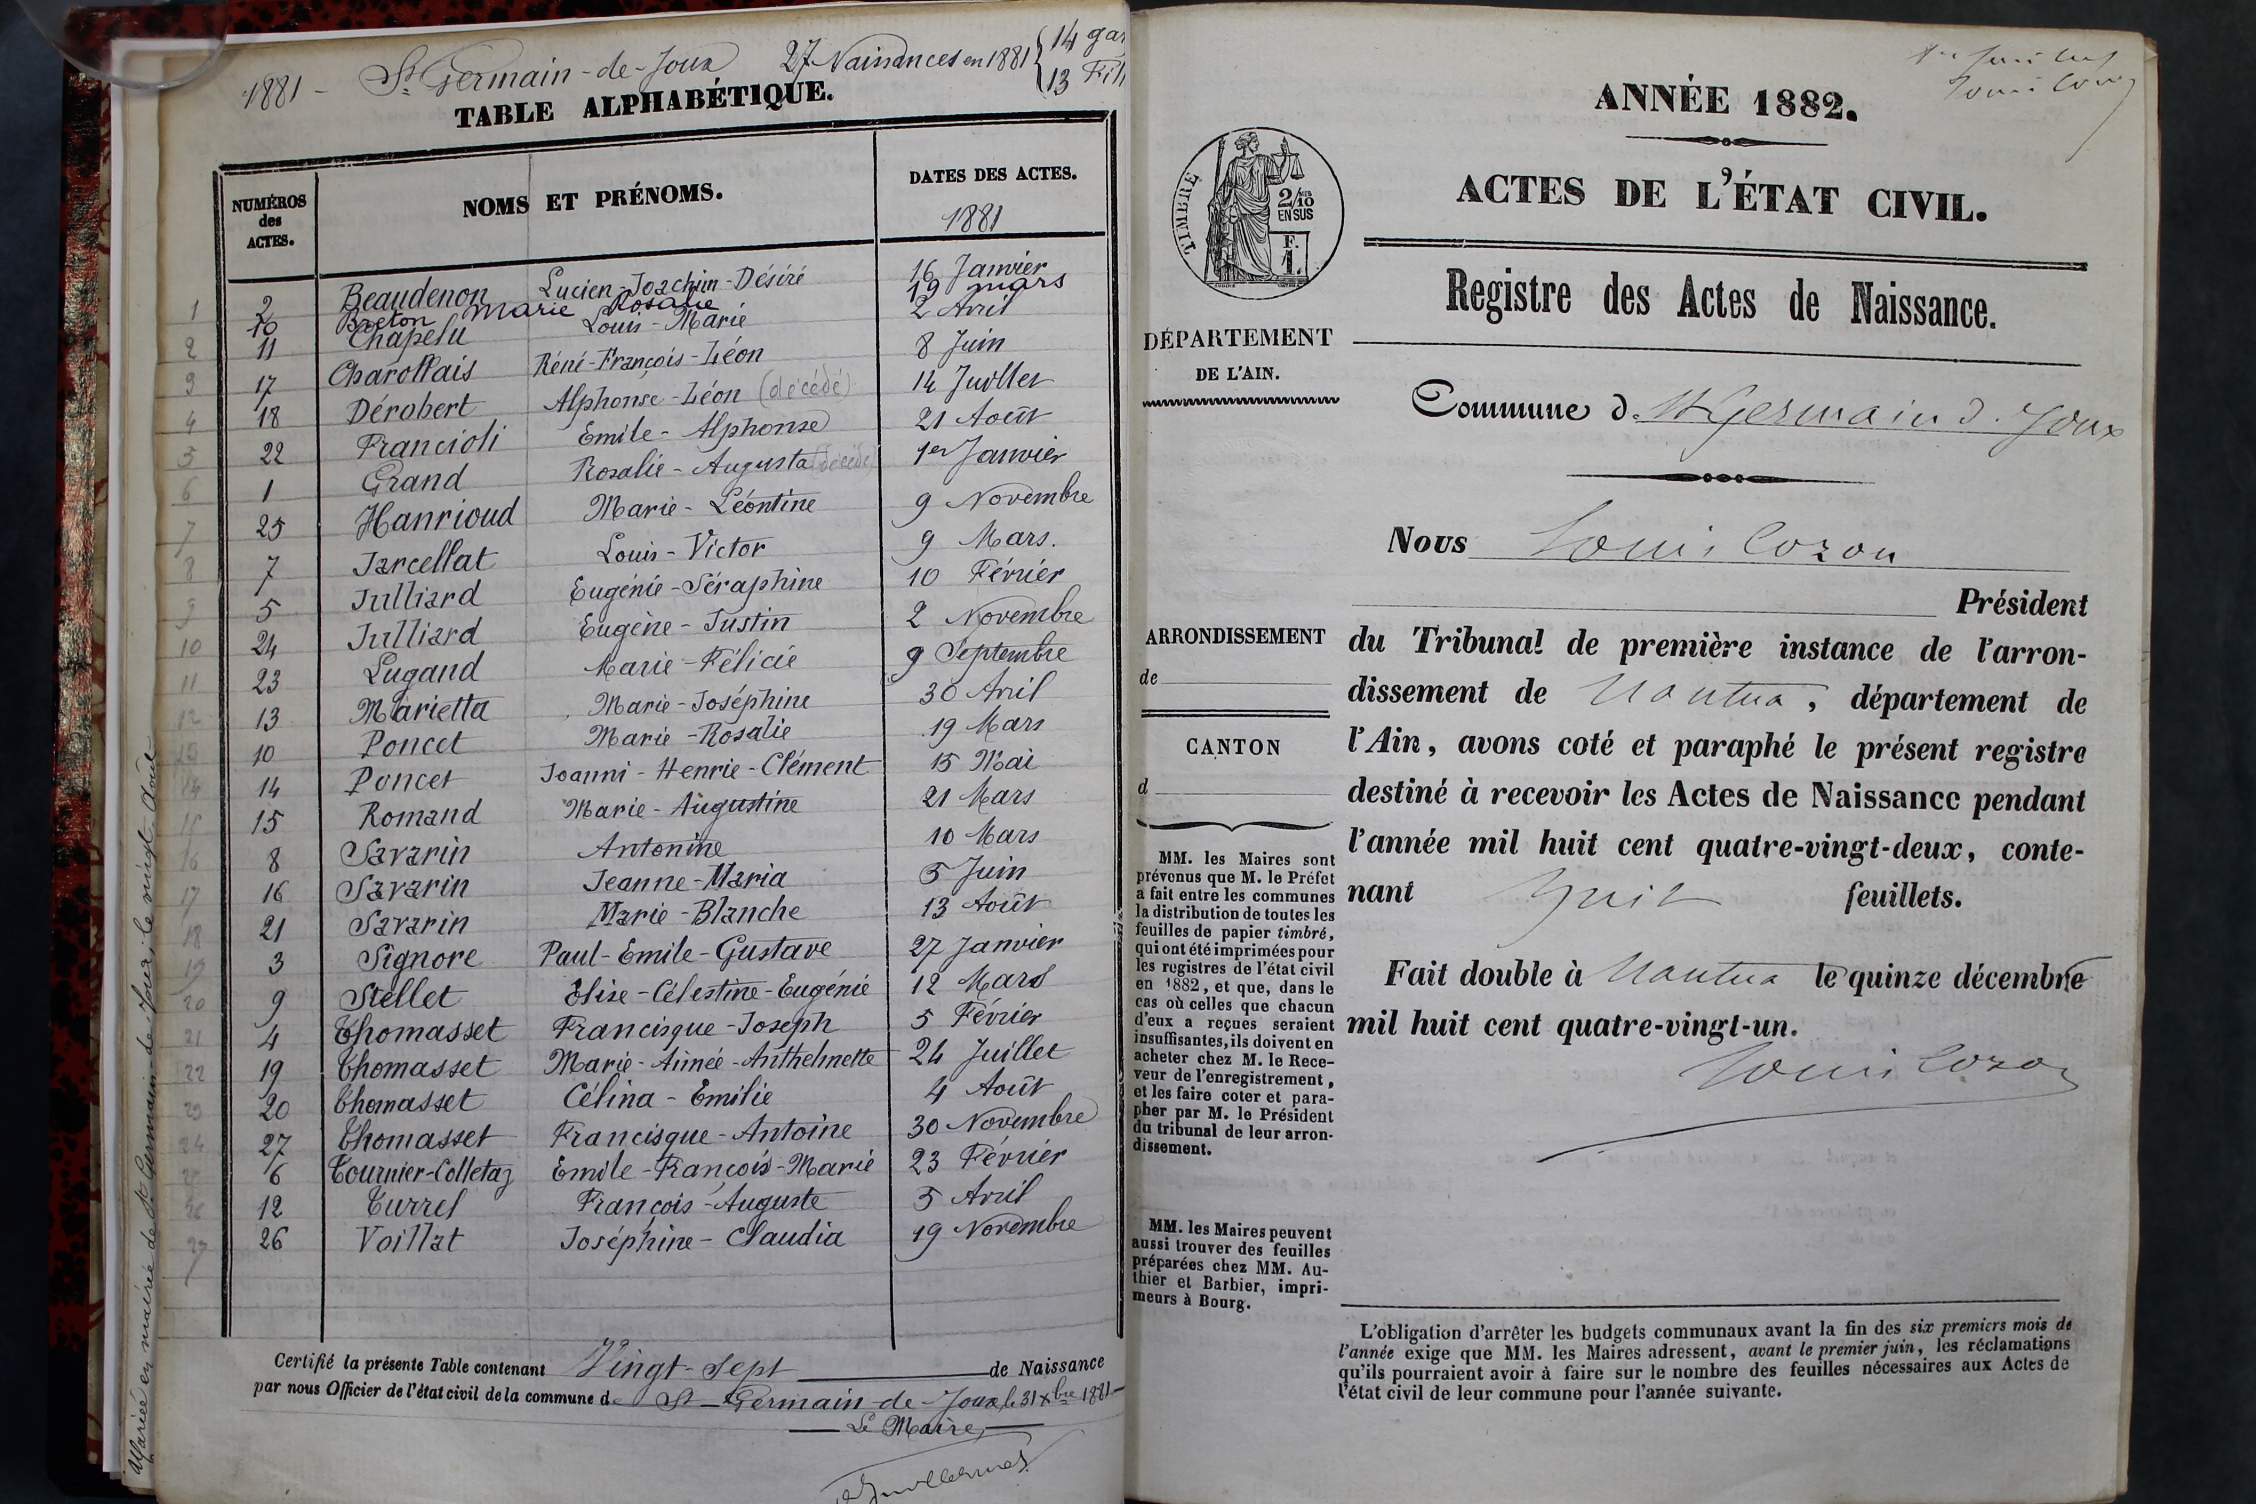 1881 - St Germain-de-Joux 27 Naissances en 1881 { 14 gar
13 Fill
TABLE ALPHABÉTIQUE.
NUMÉROS des ACTES. NOMS ET PRÉNOMS. DATES DES ACTES.
1881
1 2 Beaudenon Lucien-Joachim-Désiré 16 Janvier
10 Breton Marie Rosalie 19 mars
2 11 Chapelu Louis-Marie 2 Avril
3 17 Charollais Réné-François-Léon 8 Juin
4 18 Dérobert Alphonse-Léon (décédé) 14 Juillet
5 22 Francioli Emile-Alphonse 21 Août
6 1 Grand Rosalie-Augusta (décédée) 1er Janvier
7 25 Hanrioud Marie-Léontine 9 Novembre
8 7 Jarcellat Louis-Victor 9 Mars.
9 5 Julliard Eugénie-Séraphine 10 Février
10 24 Julliard Eugène-Justin 2 Novembre
11 23 Lugand Marie-Félicie 9 Septembre
12 13 Marietta Marie-Joséphine 30 Avril
13 10 Poncet Marie-Rosalie 19 Mars
14 14 Poncet Joanni-Henrie-Clément 15 Mai
15 15 Romand Marie-Augustine 21 Mars
16 8 Savarin Antonine 10 Mars
17 16 Savarin Jeanne-Maria 5 Juin
18 21 Savarin Marie-Blanche 13 Août
19 3 Signore Paul-Emile-Gustave 27 Janvier
20 9 Stéllet Elise-Célestine-Eugénie 12 Mars
21 4 Thomasset Francisque-Joseph 5 Février
22 19 Thomasset Marie-Aimée-Anthelmette 24 Juillet
23 20 Thomasset Célina-Emilie 4 Août
24 27 Thomasset Francisque-Antoine 30 Novembre
25 6 Tournier-Colletaz Emile-François-Marie 23 Février
26 12 Turrel François-Auguste 5 Avril
27 26 Voillat Joséphine-Claudia 19 Novembre
Certifié la présente Table contenant Vingt-Sept de Naissance
par nous Officier de l'état civil de la commune de St-Germain-de-Joux, le 31 Xbre 1881-
Le Maire,
Mariée en mairie de St Germain-de-Joux, le vingt Août
Louis Cozon
ANNÉE 1882.
ACTES DE L'ÉTAT CIVIL.
Registre des Actes de Naissance.
TIMBRE
2/10 EN SUS
F. 1.
DÉPARTEMENT
DE L'AIN.
Commune d. St Germain d. Joux
Nous Louis Cozon
Président
ARRONDISSEMENT
de
CANTON
d
du Tribunal de première instance de l'arron-
dissement de Nantua, département de
l'Ain, avons coté et paraphé le présent registre
destiné à recevoir les Actes de Naissance pendant
l'année mil huit cent quatre-vingt-deux, conte-
nant huit feuillets.
Fait double à Nantua le quinze décembre
mil huit cent quatre-vingt-un.
Louis Cozon
MM. les Maires sont
prévenus que M. le Préfet
a fait entre les communes
la distribution de toutes les
feuilles de papier timbré,
qui ont été imprimées pour
les registres de l'état civil
en 1882, et que, dans le
cas où celles que chacun
d'eux a reçues seraient
insuffisantes, ils doivent en
acheter chez M. le Rece-
veur de l'enregistrement,
et les faire coter et para-
pher par M. le Président
du tribunal de leur arron-
dissement.
MM. les Maires peuvent
aussi trouver des feuilles
préparées chez MM. Au-
thier et Barbier, impri-
meurs à Bourg.
L'obligation d'arrêter les budgets communaux avant la fin des six premiers mois de
l'année exige que MM. les Maires adressent, avant le premier juin, les réclamations
qu'ils pourraient avoir à faire sur le nombre des feuilles nécessaires aux Actes de
l'état civil de leur commune pour l'année suivante.